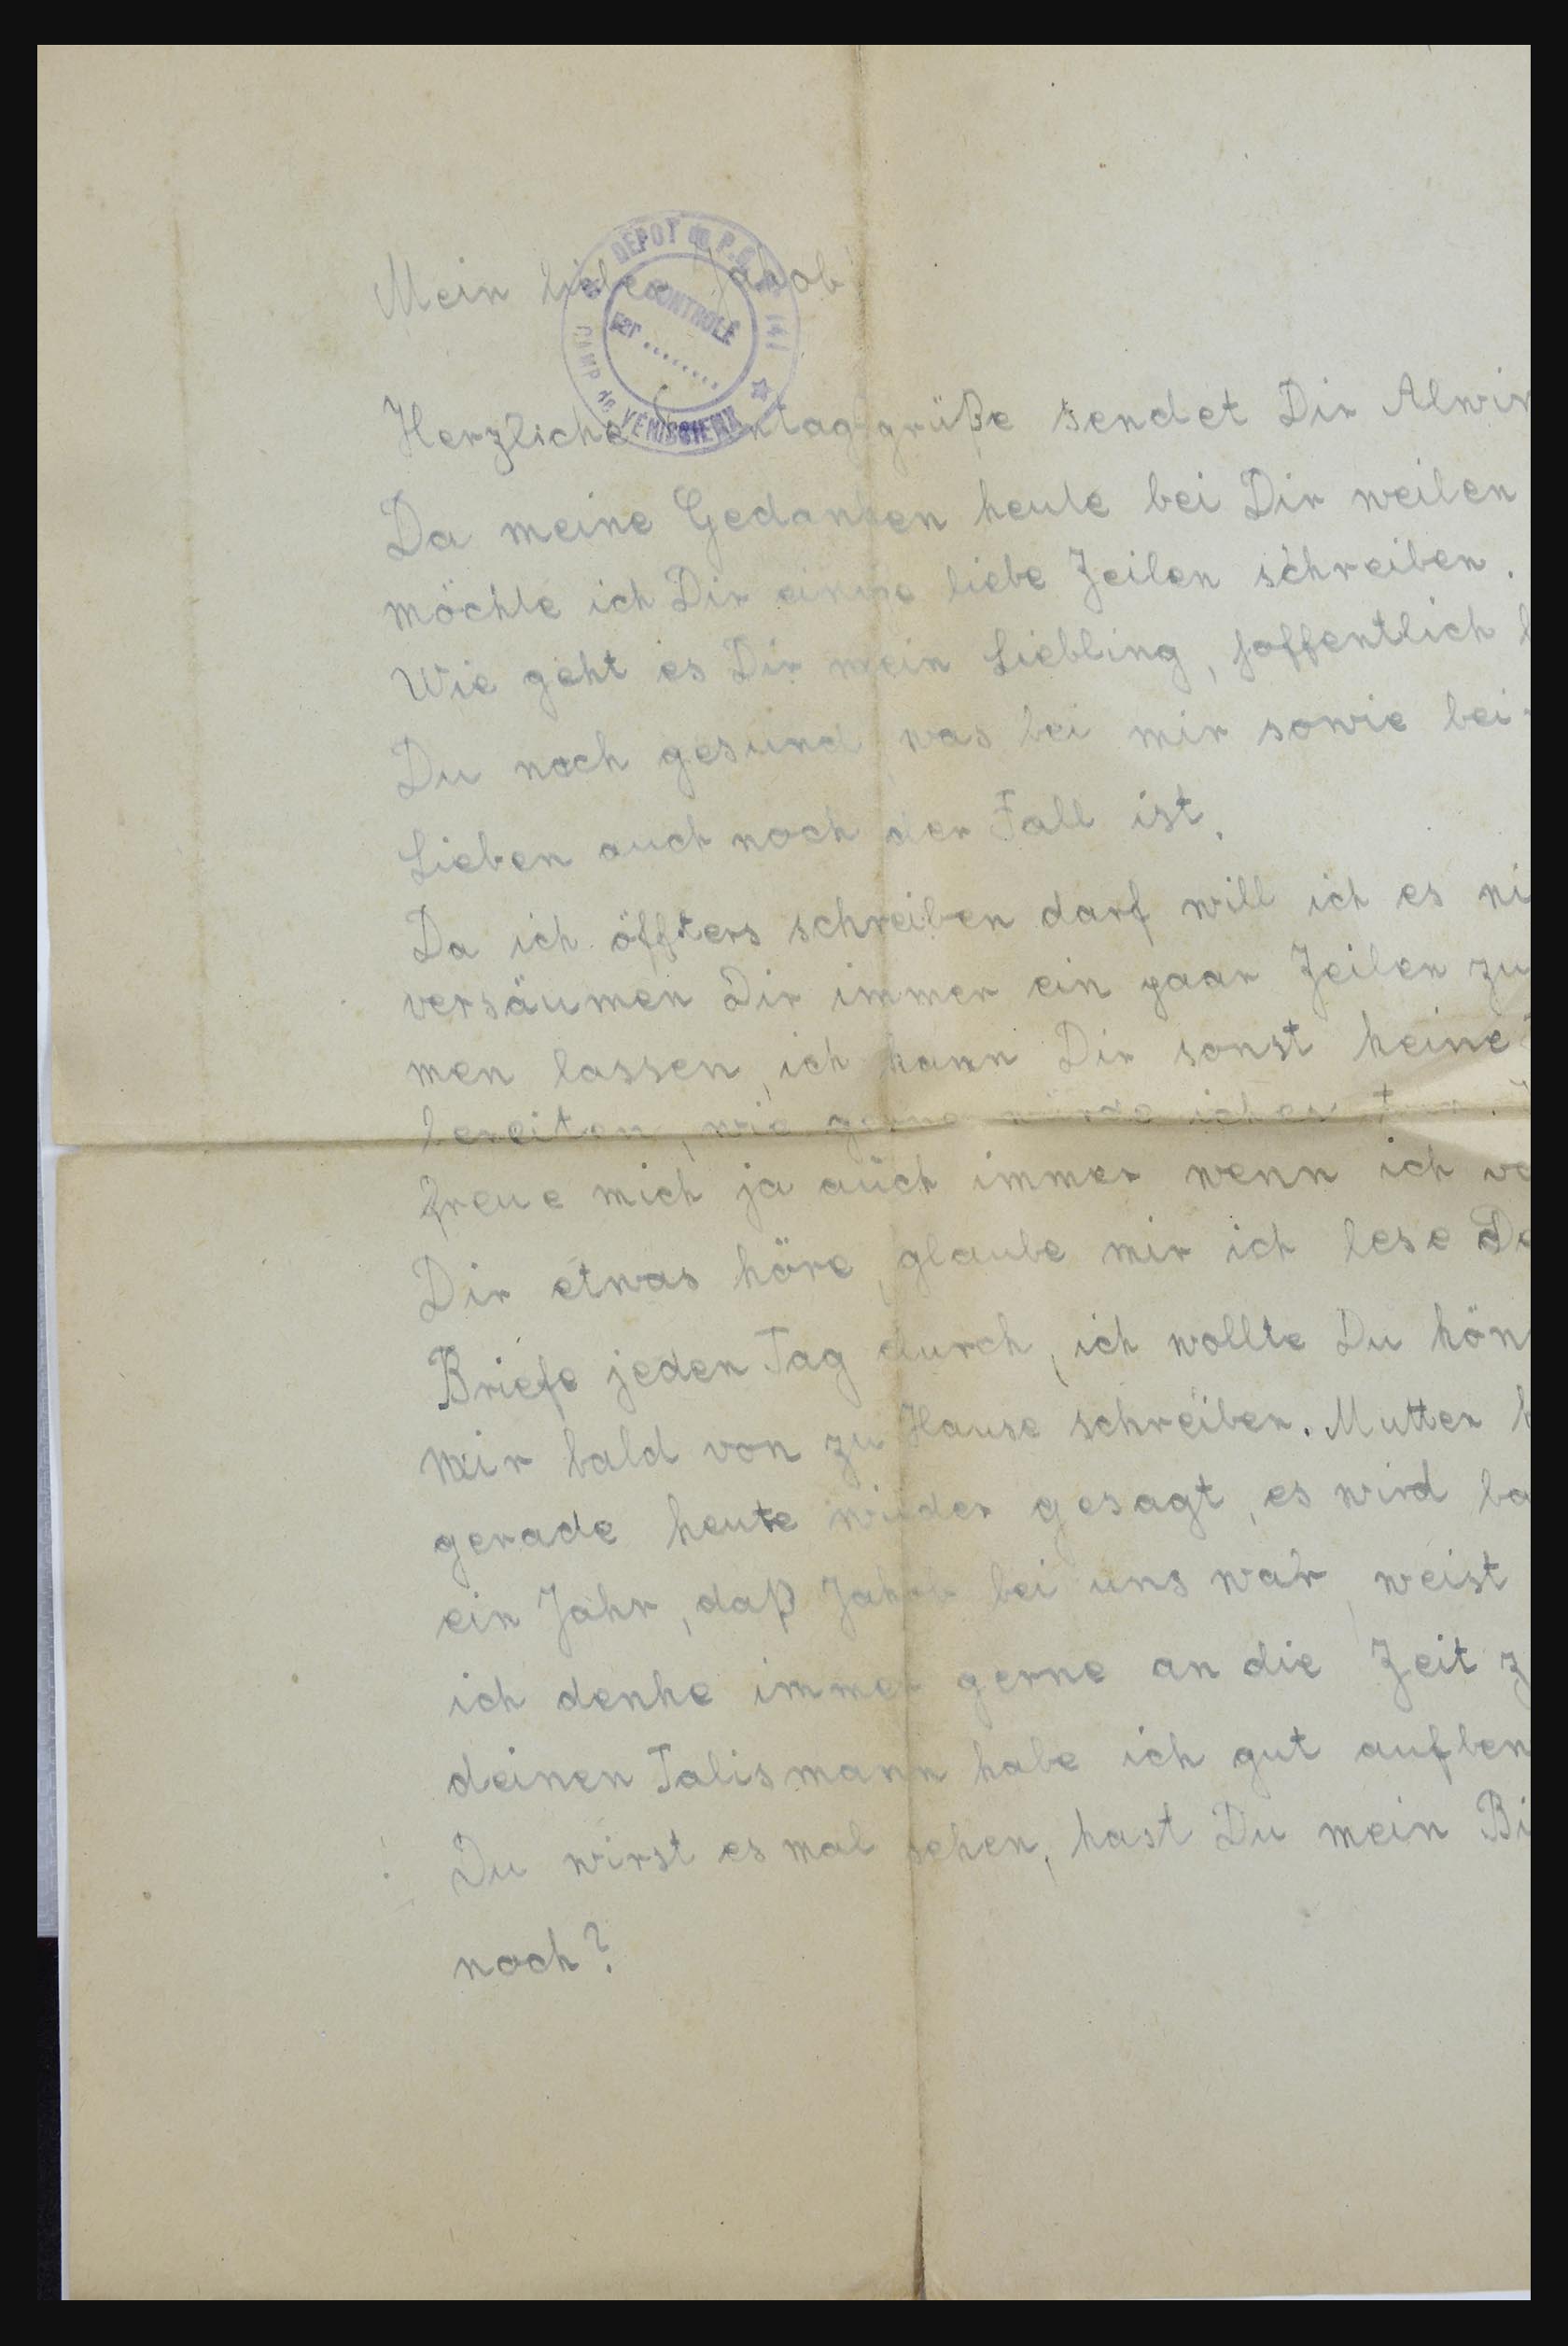 DEPOT de P.G. 141
CONTROLE
par ........
CAMP de VÉNISSIEUX
Mein lieber Jakob!
Herzliche Sonntagsgrüße sendet Dir Alwin
Da meine Gedanken heute bei Dir weilen
möchte ich Dir einige liebe Zeilen schreiben.
Wie geht es Dir mein Liebling, hoffentlich
Du noch gesund, was bei mir sowie bei
Lieben auch noch der Fall ist.
Da ich öffters schreiben darf will ich es ni
versäumen Dir immer ein paar Zeilen zu
men lassen, ich kann Dir sonst keine
bereiten, wie gerne würde ich es tun.
freue mich ja auch immer wenn ich vo
Dir etwas höre, glaube mir ich lese De
Briefe jeden Tag durch, ich wollte Du kön
mir bald von zu Hause schreiben. Mutter h
gerade heute wieder gesagt, es wird ba
ein Jahr, daß Jakob bei uns war, weist
ich denke immer gerne an die Zeit z
deinen Talismann habe ich gut aufben
Du wirst es mal sehen, hast Du mein Bi
noch?